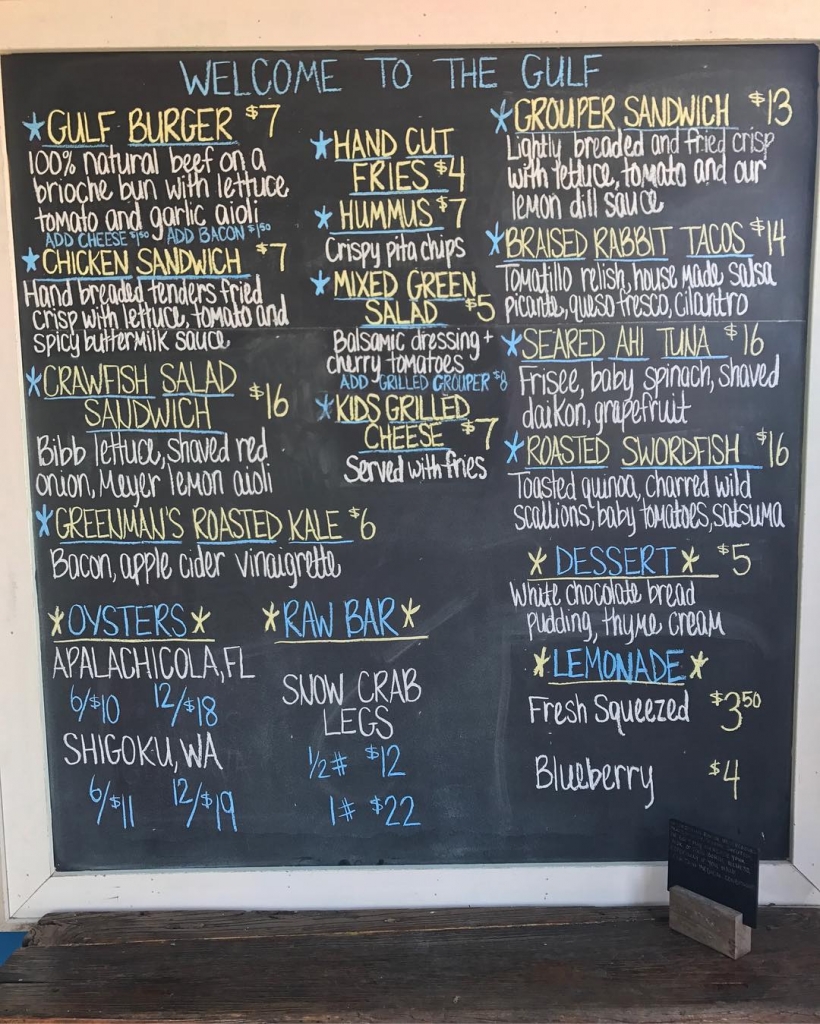 WELCOME TO THE GULF
*GULF BURGER $7
100% natural beef on a
brioche bun with lettuce
tomato and garlic aioli
ADD CHEESE $1.50 ADD BACON $1.50
*CHICKEN SANDWICH $7
Hand breaded tenders fried
crisp with lettuce, tomato and
spicy buttermilk sauce
*CRAWFISH SALAD
SANDWICH $16
Bibb lettuce, shaved red
onion, Meyer lemon aioli
*GREENMAN'S ROASTED KALE $6
Bacon, apple cider vinaigrette
*HAND CUT
FRIES $4
*HUMMUS $7
Crispy pita chips
*MIXED GREEN
SALAD $5
Balsamic dressing +
cherry tomatoes
ADD GRILLED GROUPER $8
*KIDS GRILLED
CHEESE $7
Served with fries
*GROUPER SANDWICH $13
Lightly breaded and fried crisp
with lettuce, tomato and our
lemon dill sauce
*BRAISED RABBIT TACOS $14
Tomatillo relish, house made salsa
picante, queso fresco, cilantro
*SEARED AHI TUNA $16
Frisee, baby spinach, shaved
daikon, grapefruit
*ROASTED SWORDFISH $16
Toasted quinoa, charred wild
scallions, baby tomatoes, satsuma
*DESSERT* $5
White chocolate bread
pudding, thyme cream
*LEMONADE*
Fresh Squeezed $3.50
Blueberry $4
*OYSTERS*
APALACHICOLA, FL
6/$10 12/$18
SHIGOKU, WA
6/$11 12/$19
*RAW BAR*
SNOW CRAB
LEGS
1/2# $12
1# $22